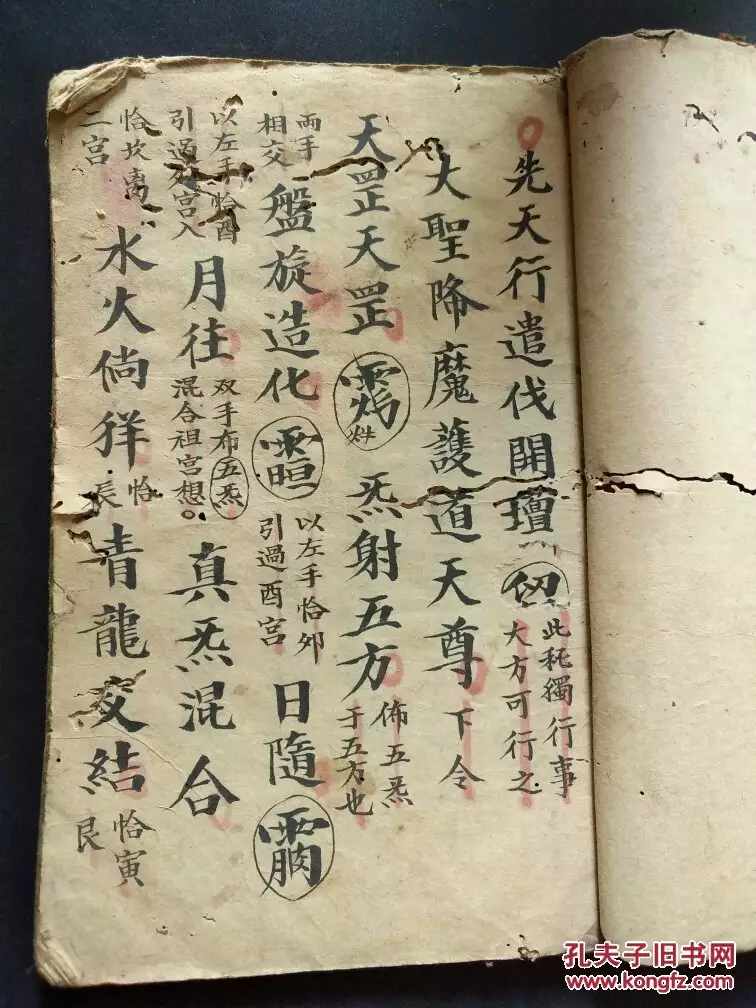 先天行遣伐開壇
此秏獨行事
大方可行之
大聖降魔護道天尊下令
天罡天罡
炁射五方
佈五炁
于五方也
両手
相交
盤旋造化
以左手恰夘
引過酉宮
日隨
以左手恰酉
引過夘宮入
月往
双手布五炁
混合祖宮想。
真炁混合
恰坎离
二宮
水火徜徉
恰
長
青龍交結
恰寅
艮
孔夫子旧书网
www.kongfz.com